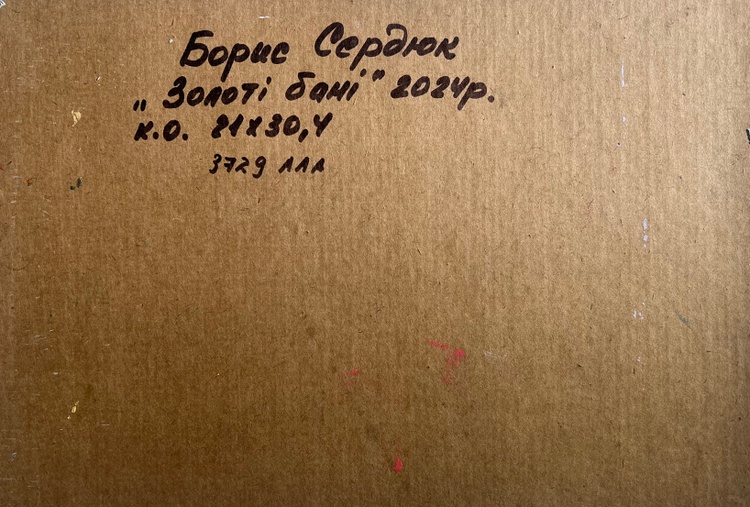 Борис Сердюк
„Золоті бані" 2024р.
к.о. 21х30,4
3729 ллл